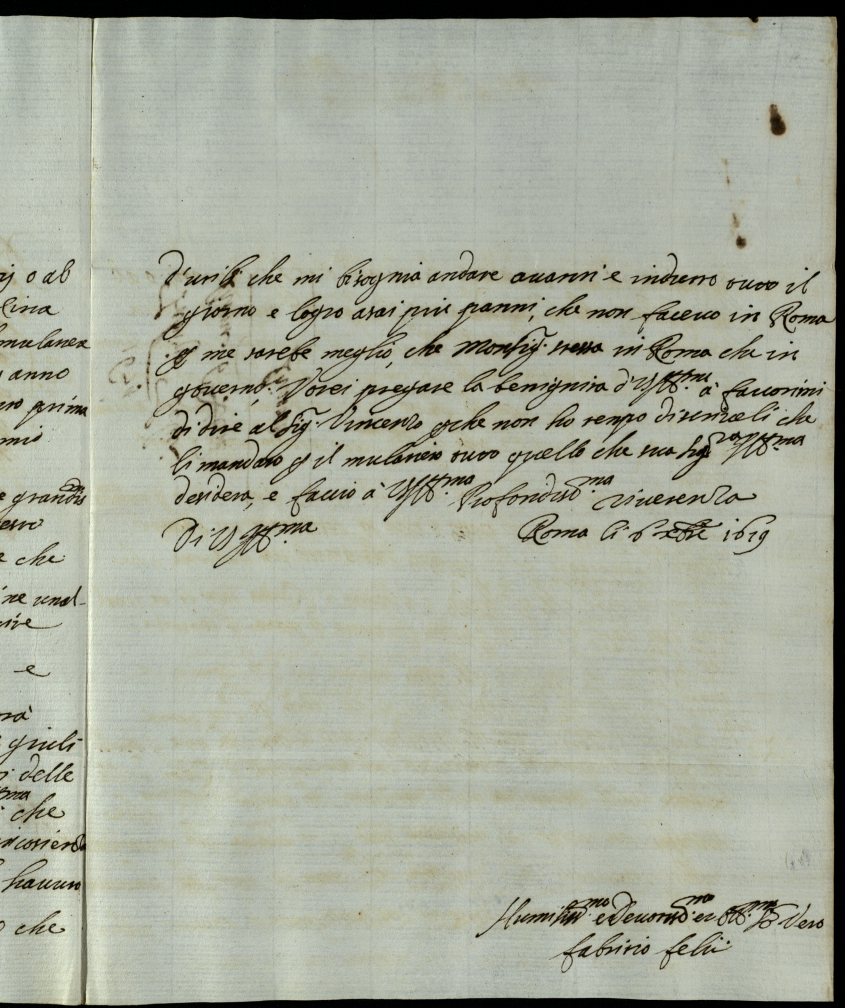 ij o ab
lina
mulanea
anno
prima
mio
e grandis
esser
e che
ne unal-
e
giuli
delle
che
hauuto
o che
d'urili che mi bisognia andare auanti e indietro tutto il
giorno e logro asai più panni, che non faceuo in Roma
p me sarebe meglio, che Monsig.r stessa in Roma che in
gouerno. Vorei pregare la benignita d'VS Ill.ma à fauorirmi
di dire al sig.r Vincenzo p che non ho tempo di scriueli che
li mandaro p il mulatiero tutto quello che sua sig.ria Ill.ma
desidera, e faccio à VS Ill.ma Profondiss.ma riuerenza
Di VS Ill.ma Roma li 6 xbre 1619
Humiliss.mo e Deuotiss.mo et Obb.mo S.re Vero
fabritio felii